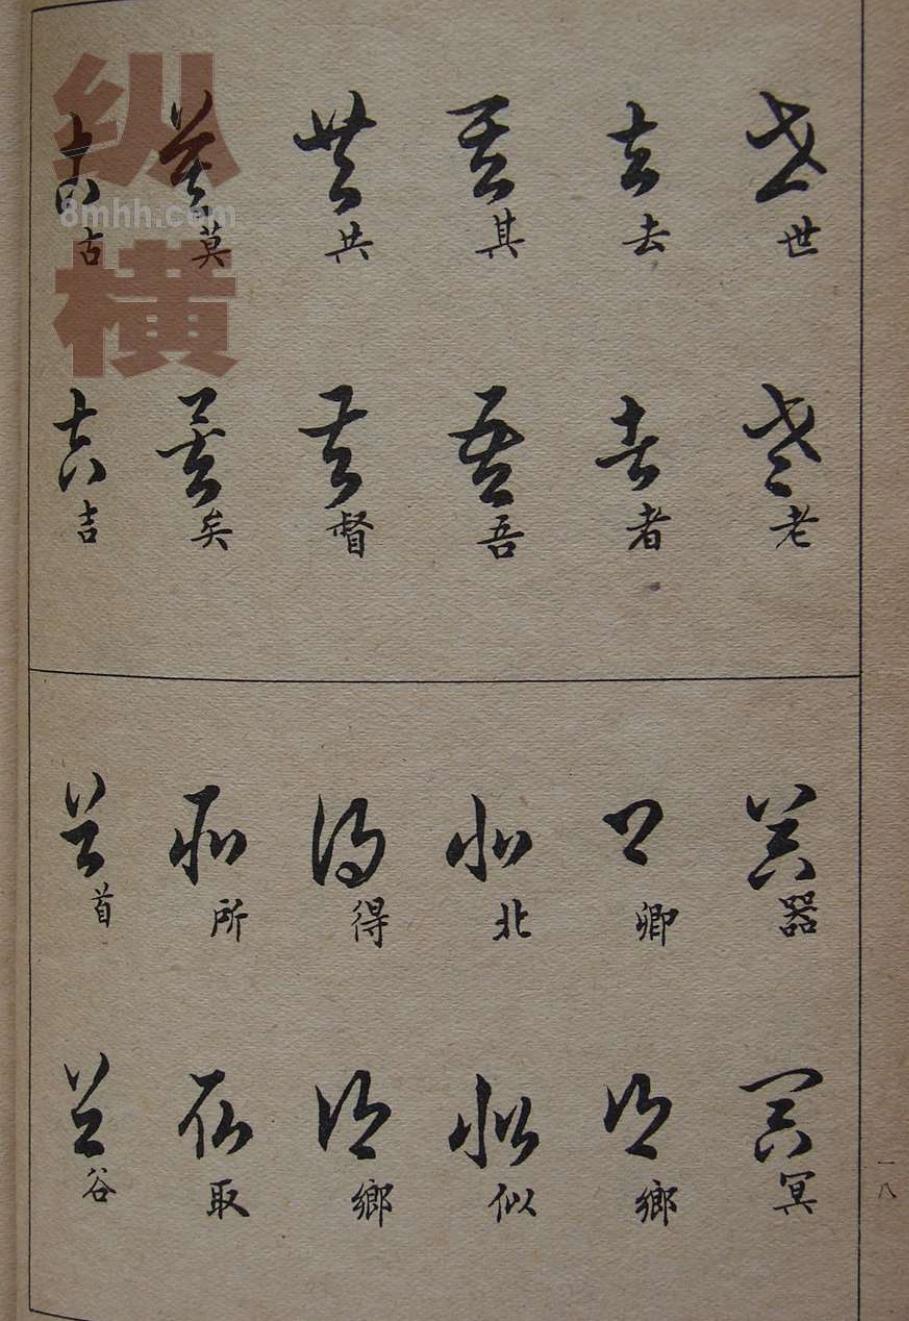 世
老
去
者
其
吾
共
督
莫
矣
古
吉
器
冥
卿
鄉
北
似
得
鄉
所
取
首
谷
一八
纵横
8mhh.com